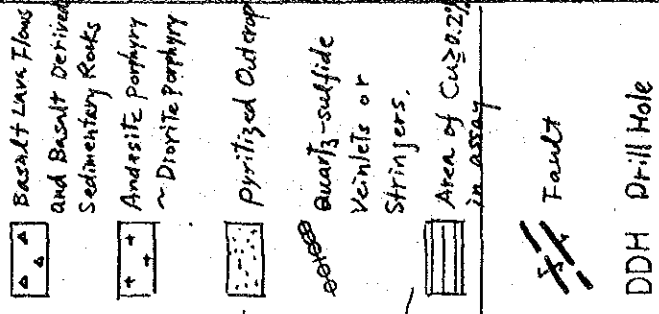 Basalt Lava Flows
and Basalt Derived
Sedimentary Rocks
Andesite Porphyry
~ Diorite Porphyry
Pyritized Outcrop
Quartz-sulfide
Veinlets or
Stringers.
Area of Cu≥0.2%
in assay
Fault
DDH Drill Hole